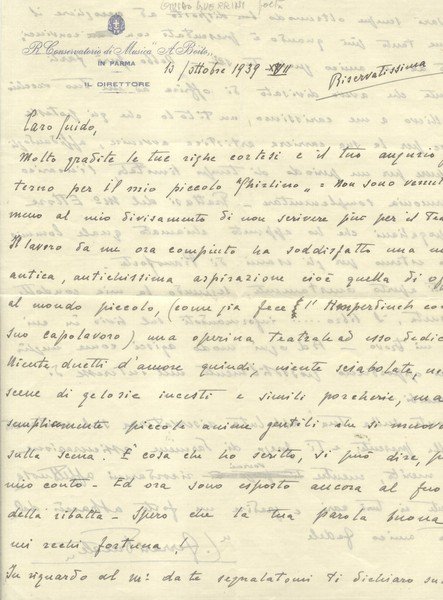 GUIDO GUERRINI
R. Conservatorio di Musica „A. Boito„
IN PARMA
IL DIRETTORE
13 ottobre 1939 XVII
Riservatissima
Caro Guido,
Molto gradite le tue righe cortesi e il tuo augurio
terno per il mio piccolo "Ghirlino„ - Non sono venuto
meno al mio divisamento di non scrivere più per il Tea
Il lavoro da me ora compiuto ha soddisfatto una mi
antica, antichissima aspirazione cioè quella di off
al mondo piccolo, (come già fece l'Humperdinch con
suo capolavoro) una operina teatrale ad esso dedic
Niente duetti d'amore quindi, niente sciabolate, ne
scene di gelosie incesti e simili porcherie, ma
semplicemente piccole anime gentili che si muovo
sulla scena. È cosa che ho scritto, si può dire, p
mio conto - Ed ora sono esposto ancora al fuo
della ribalta - Spero che la tua parola buona
mi rechi fortuna!
In riguardo al Mº da te segnalatomi ti dichiaro su